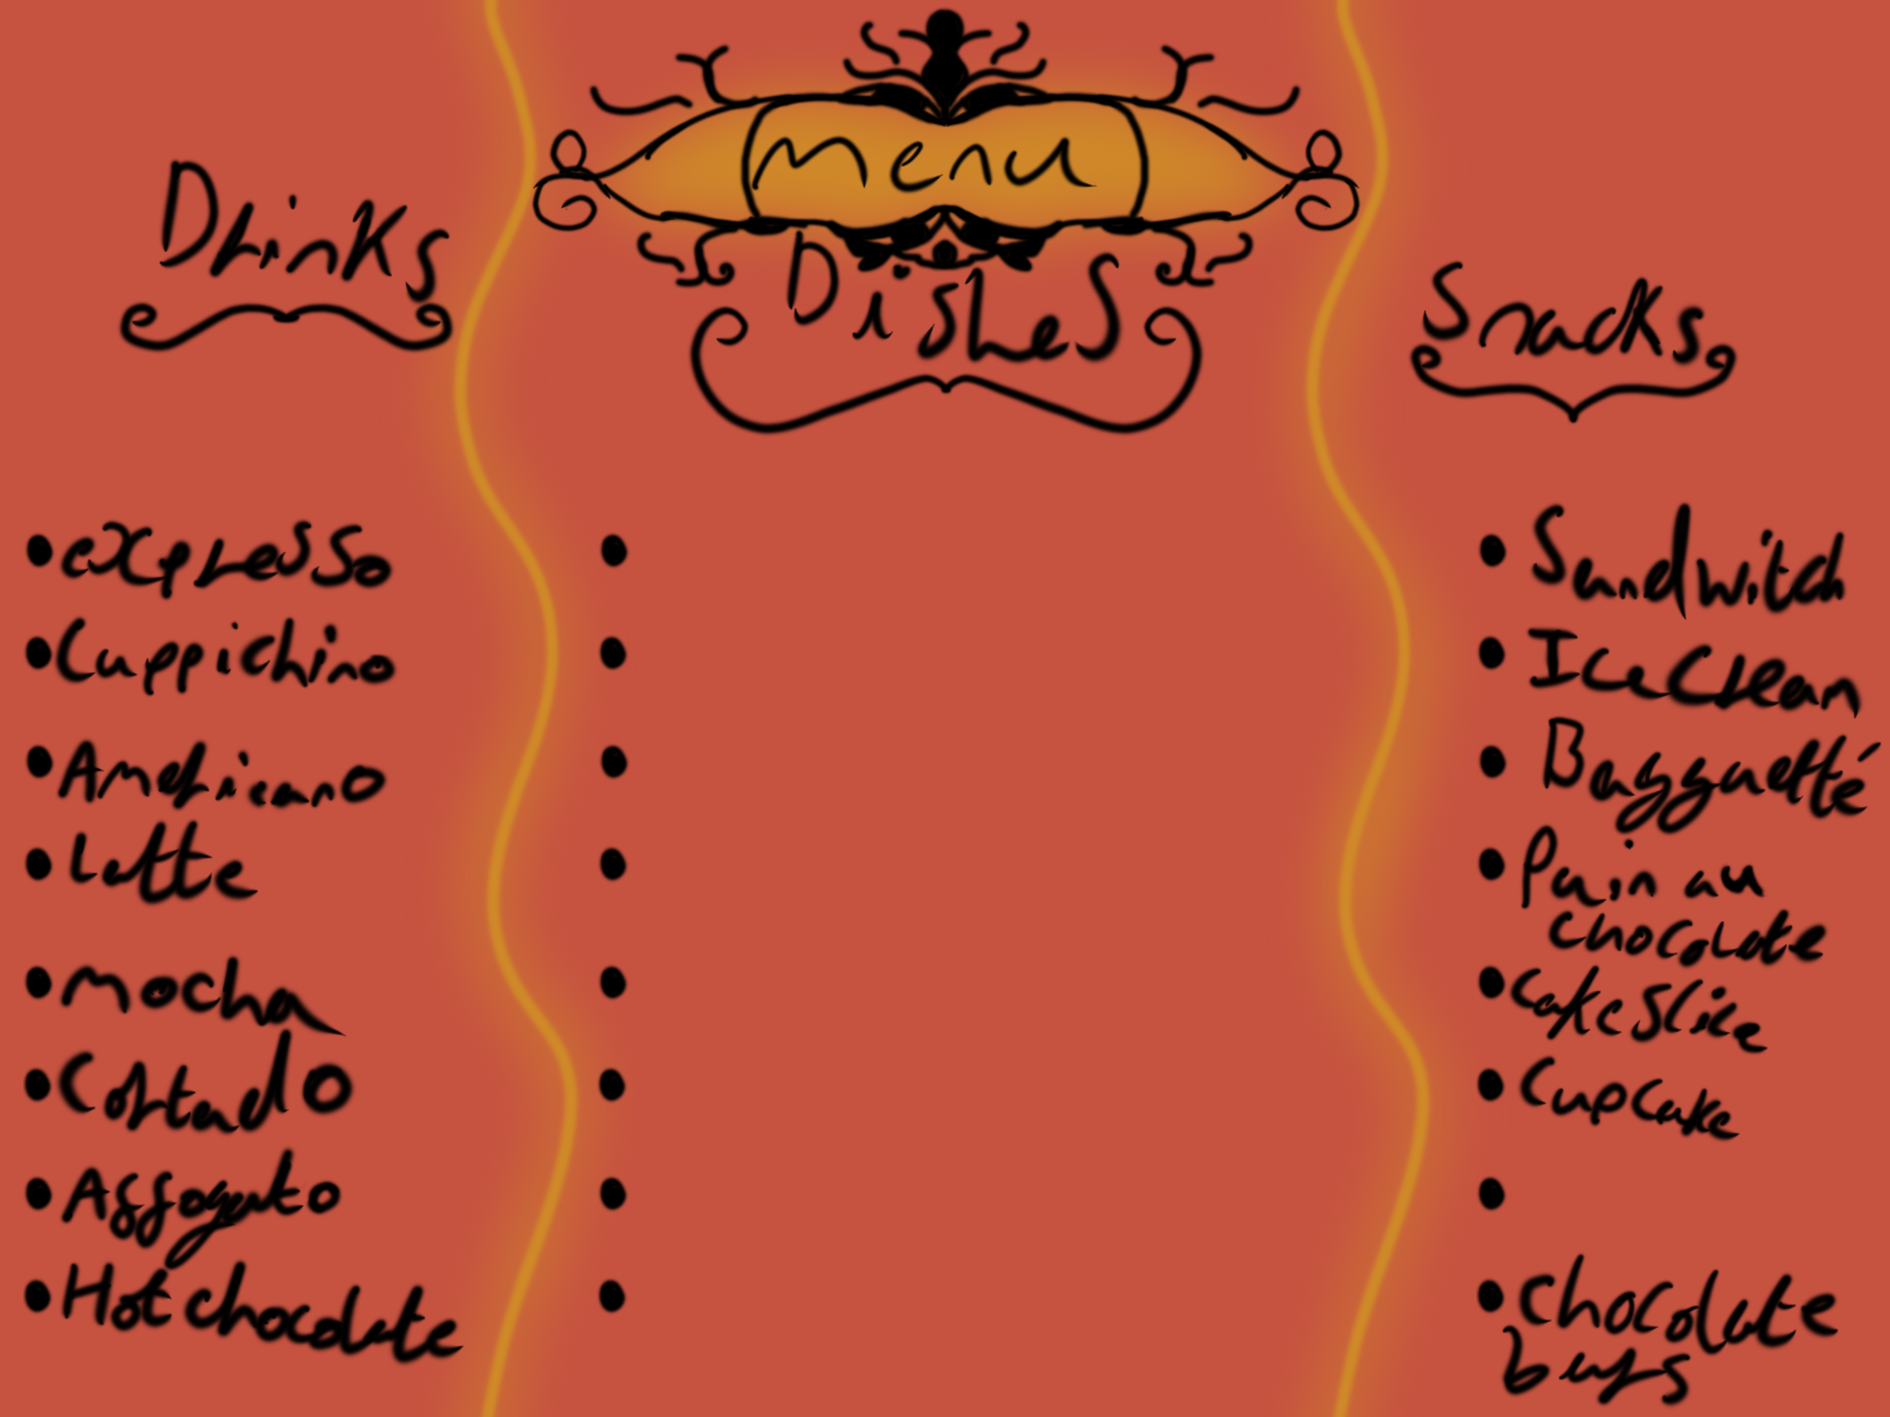 Menu
Drinks
Dishes
Snacks
expresso
Cuppichino
Americano
Latte
mocha
Cortado
Affogato
Hot chocolate
Sandwitch
Ice Cream
Bagguetté
Pain au
chocolate
Cake Slice
Cupcake
chocolate
bars